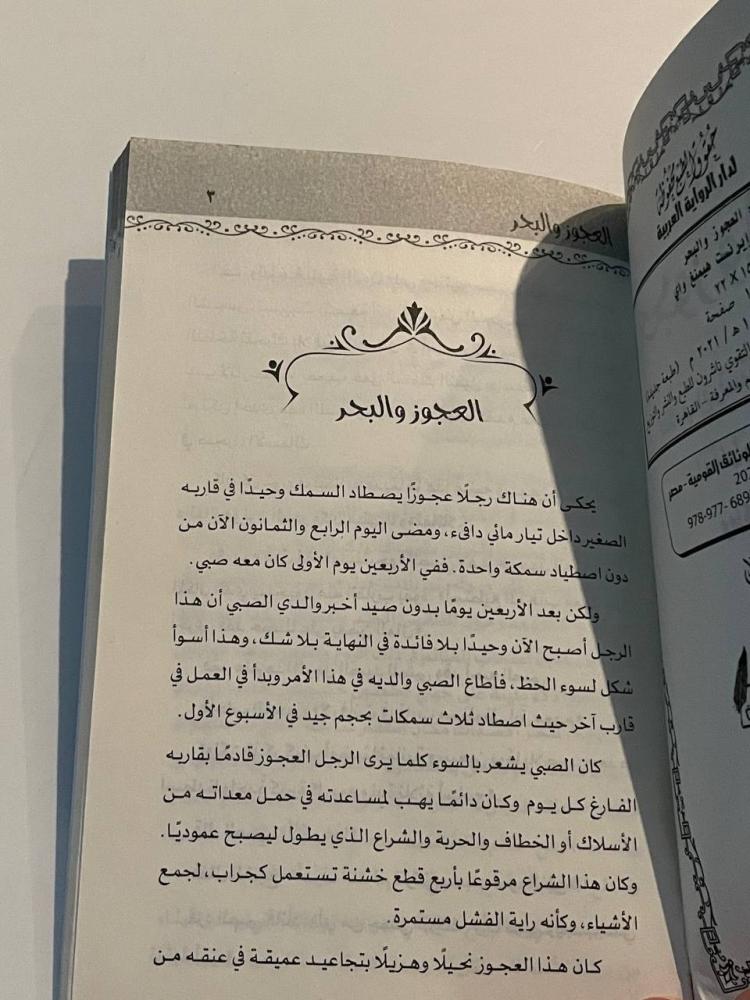 العجوز والبحر
٣
العجوز والبحر
يحكى أن هناك رجلًا عجوزًا يصطاد السمك وحيدًا في قاربه
الصغير داخل تيار مائي دافىء، ومضى اليوم الرابع والثمانون الآن من
دون اصطياد سمكة واحدة. ففي الأربعين يوم الأولى كان معه صبي.
ولكن بعد الأربعين يومًا بدون صيد أخبر والدي الصبي أن هذا
الرجل أصبح الآن وحيدًا بلا فائدة في النهاية بلا شك، وهذا أسوأ
شكل لسوء الحظ، فأطاع الصبي والديه في هذا الأمر وبدأ في العمل في
قارب آخر حيث اصطاد ثلاث سمكات بحجم جيد في الأسبوع الأول.
كان الصبي يشعر بالسوء كلما يرى الرجل العجوز قادمًا بقاربه
الفارغ كل يوم وكان دائمًا يهب لمساعدته في حمل معداته من
الأسلاك أو الخطاف والحربة والشراع الذي يطول ليصبح عموديًا.
وكان هذا الشراع مرقوعًا بأربع قطع خشنة تستعمل كجراب، لجمع
الأشياء، وكأنه راية الفشل مستمرة.
كان هذا العجوز نحيلًا وهزيلًا بتجاعيد عميقة في عنقه من
حقوق الطبع محفوظة
لدار الرواية العربية
العجوز والبحر
إيرنست هيمنغ واي
٢٢ X ١٥
صفحة
هـ / ٢٠٢١ م (طبعة جديدة)
التقوي ناشرون للطبع والنشر والتوزيع
والمعرفة - القاهرة
الوثائق القومية - مصر
978-977-689